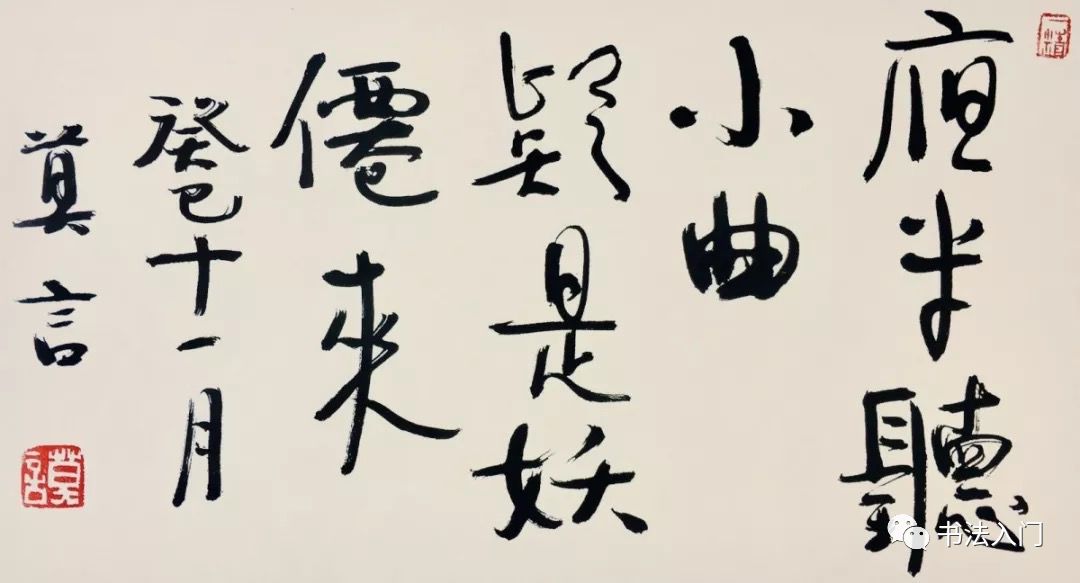 夜半聽
小曲
疑是妖
僊來
癸巳十一月
莫言
书法入门